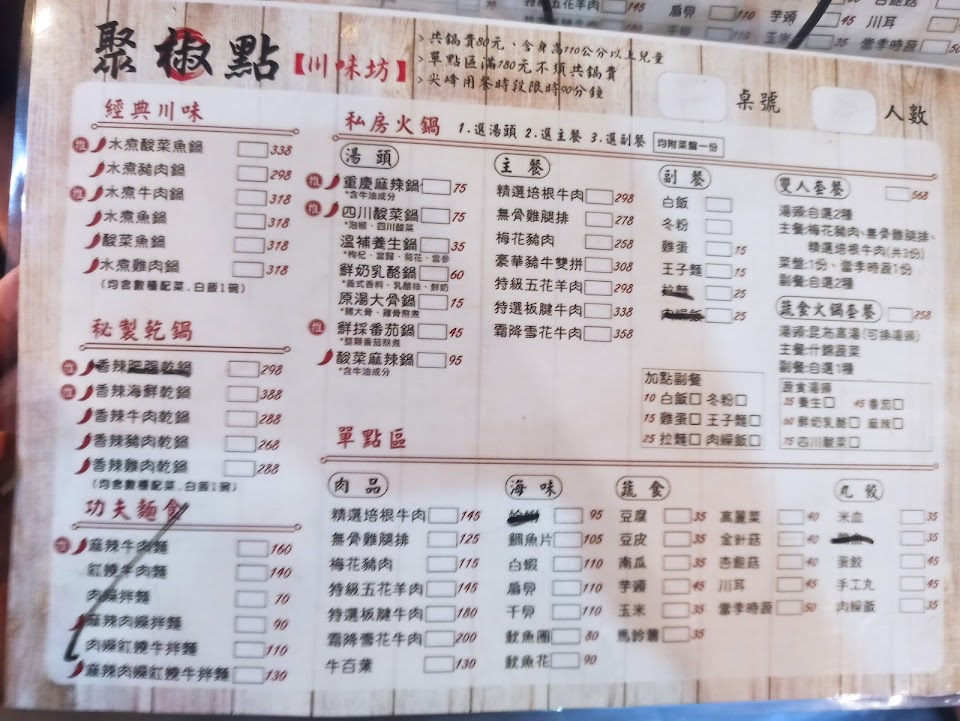 聚椒點【川味坊】
> 共鍋費80元、含身高110公分以上兒童
> 單點區滿180元不須共鍋費
> 尖峰用餐時段限時90分鐘
桌號
人數
經典川味
推 水煮酸菜魚鍋 338
水煮豬肉鍋 298
推 水煮牛肉鍋 318
水煮魚鍋 318
酸菜魚鍋 318
水煮雞肉鍋 318
(均含數種配菜、白飯1碗)
秘製乾鍋
推 香辣 乾鍋 298
推 香辣海鮮乾鍋 388
香辣牛肉乾鍋 288
香辣豬肉乾鍋 268
香辣雞肉乾鍋 288
(均含數種配菜、白飯1碗)
功夫麵食
推 麻辣牛肉麵 160
紅燒牛肉麵 140
肉燥拌麵 70
麻辣肉燥拌麵 90
肉燥紅燒牛拌麵 110
麻辣肉燥紅燒牛拌麵 130
私房火鍋 1.選湯頭 2.選主餐 3.選副餐 均附菜盤一份
湯頭
推 重慶麻辣鍋 75
*含牛油成分
推 四川酸菜鍋 75
*泡椒、四川酸菜
溫補養生鍋 35
*枸杞、當歸、菊花、當參
鮮奶乳酪鍋 60
*義式香料、乳酪絲、鮮奶
原湯大骨鍋 15
*豬大骨、雞骨熬煮
推 鮮採番茄鍋 45
*整顆番茄熬煮
酸菜麻辣鍋 95
*含牛油成分
主餐
精選培根牛肉 298
無骨雞腿排 278
梅花豬肉 258
豪華豬牛雙拼 308
特級五花羊肉 298
特選板腱牛肉 338
霜降雪花牛肉 358
副餐
白飯
冬粉
雞蛋 15
王子麵 15
拉麵 25
肉燥飯 25
加點副餐
10 白飯 冬粉
15 雞蛋 王子麵
25 拉麵 肉燥飯
雙人套餐 568
湯頭:自選2種
主餐:梅花豬肉、無骨雞腿排、
精選培根牛肉(共3份)
菜盤:1份、當季時蔬1份
副餐:自選2種
蔬食火鍋套餐 258
湯頭:昆布高湯(可換湯頭)
主餐:什錦蔬菜
副餐:自選1種
蔬食湯頭
35 養生 45 番茄
60 鮮奶乳酪 麻辣
75 四川酸菜
單點區
肉品
精選培根牛肉 145
無骨雞腿排 125
梅花豬肉 115
特級五花羊肉 145
特選板腱牛肉 180
霜降雪花牛肉 200
牛百葉 130
海味
95
鯛魚片 105
白蝦 110
扇貝 110
干貝 110
魷魚圈 80
魷魚花 90
蔬食
豆腐 35 高麗菜 40
豆皮 35 金針菇 40
南瓜 35 杏鮑菇 40
芋頭 45 川耳 45
玉米 35 當季時蔬 50
馬鈴薯 35
丸餃
米血 35
35
蛋餃 45
手工丸 45
肉燥飯 35
特級五花羊肉 145 扇貝 110 芋頭 45 川耳 45
玉米 35 當季時蔬 50